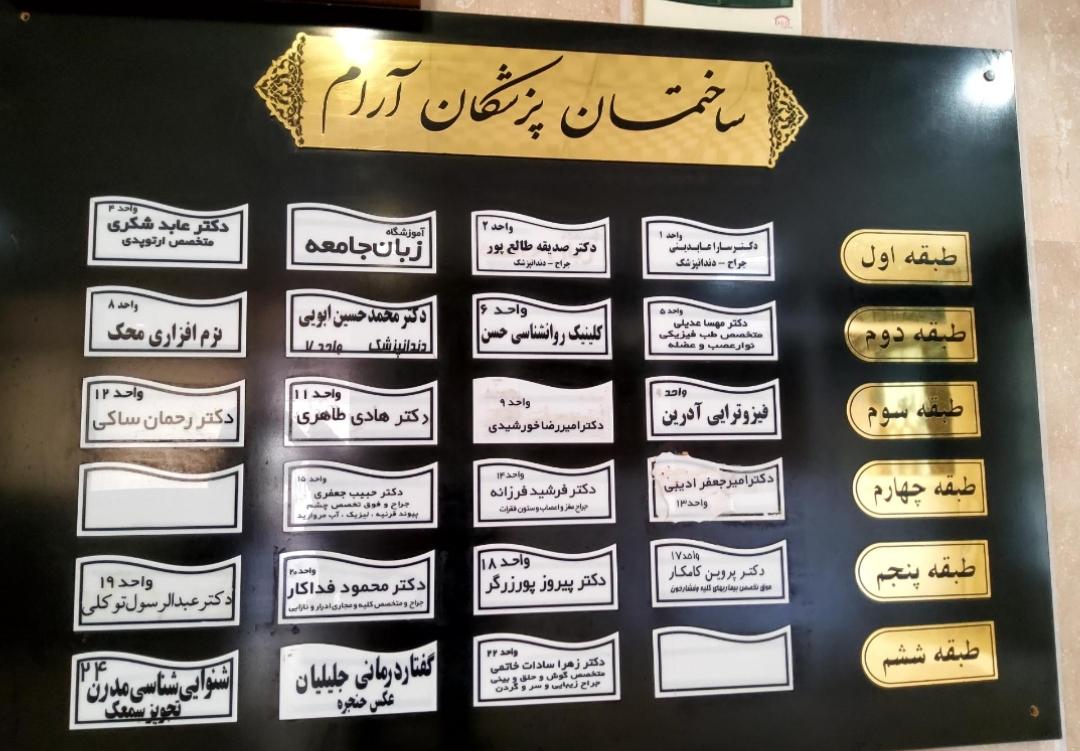 ساختمان پزشکان آرام
طبقه اول
واحد ۱
دکتر سارا عابدینی
جراح - دندانپزشک
واحد ۲
دکتر صدیقه طالع پور
جراح - دندانپزشک
آموزشگاه
زبان جامعه
واحد ۴
دکتر عابد شکری
متخصص ارتوپدی
طبقه دوم
واحد ۵
دکتر مهسا عدیلی
متخصص طب فیزیکی
نوار عصب و عضله
واحد ۶
کلینیک روانشناسی حسن
دکتر محمد حسین ابویی
دندانپزشک واحد ۷
واحد ۸
نرم افزاری محک
طبقه سوم
واحد
فیزوترایی آدرین
واحد ۹
دکتر امیررضا خورشیدی
واحد ۱۱
دکتر هادی طاهری
واحد ۱۲
دکتر رحمان ساکی
طبقه چهارم
دکتر امیر جعفر ادیبی
واحد ۱۳
واحد ۱۴
دکتر فرشید فرزانه
جراح مغز و اعصاب و ستون فقرات
واحد ۱۵
دکتر حبیب جعفری
جراح و فوق تخصص چشم
پیوند قرنیه ، لیزیک ، آب مروارید
طبقه پنجم
واحد ۱۷
دکتر پروین کامکار
فوق تخصص بیماریهای کلیه و فشارخون
واحد ۱۸
دکتر پیروز پورزرگر
واحد ۲۰
دکتر محمود فداکار
جراح و متخصص کلیه و مجاری ادرار و نازایی
واحد ۱۹
دکتر عبدالرسول توکلی
طبقه ششم
واحد ۲۲
دکتر زهرا سادات خاتمی
متخصص گوش و حلق و بینی
جراح زیبایی و سر و گردن
گفتاردرمانی جلیلیان
عکس حنجره
۲۴
شنوایی شناسی مدرن
تجویز سمعک